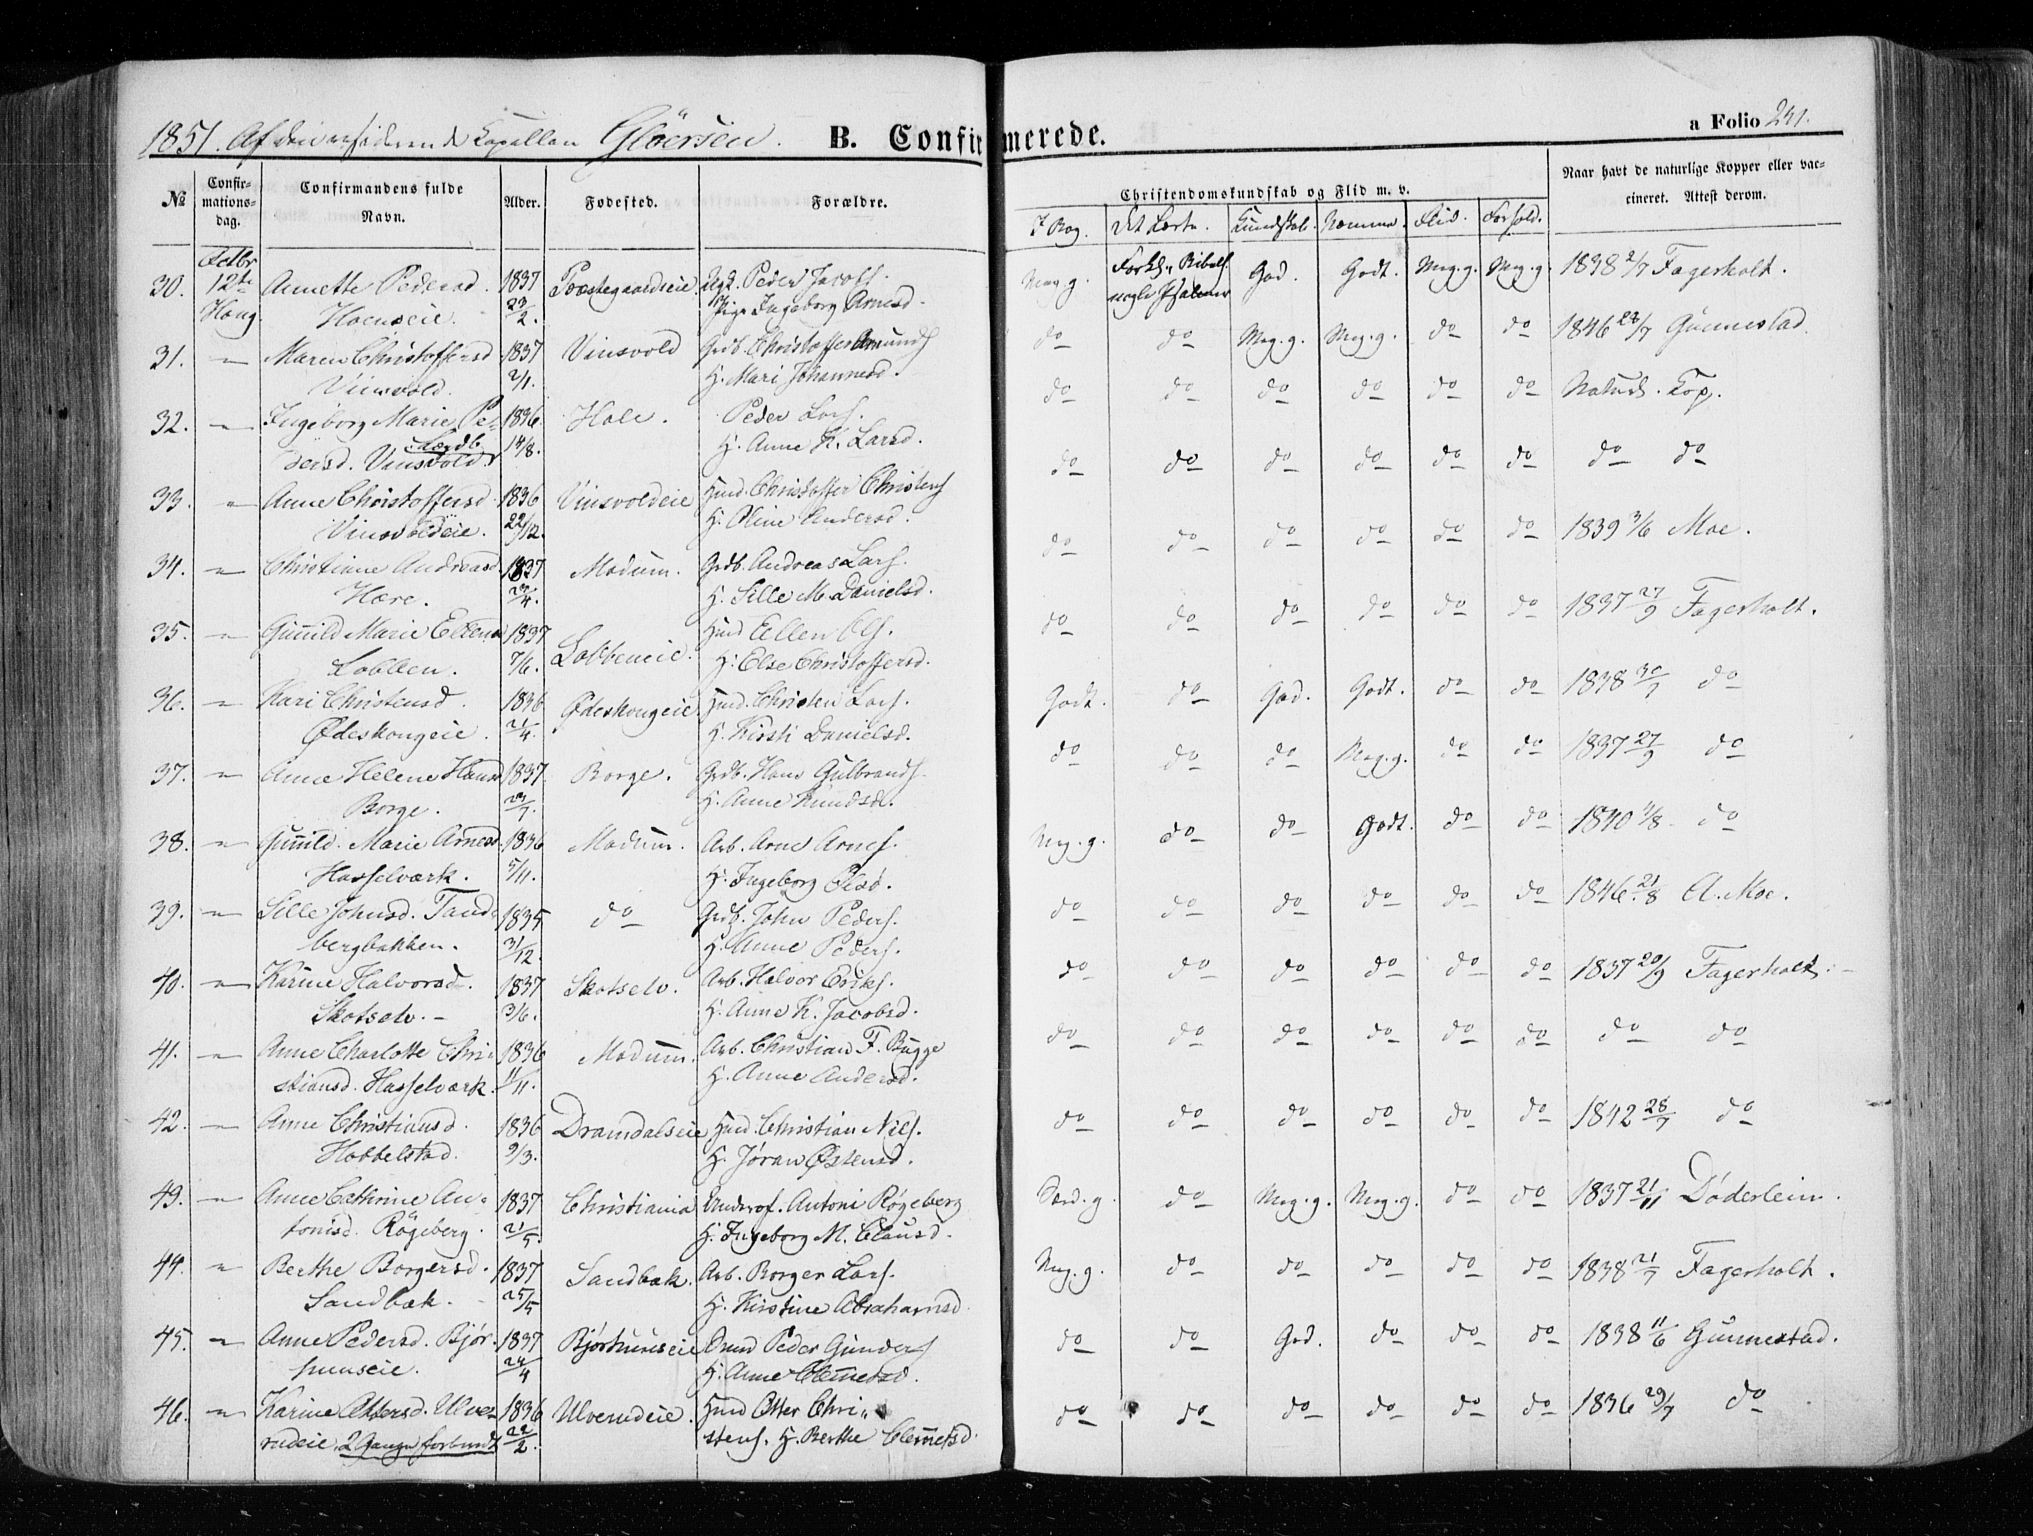 1851. Af den residerende Kapellan Glöersen. B. Confirmerede. a Folio 241.
№ Confirmationsdag. Confirmandens fulde Navn. Alder. Fødested. Forældre. Christendomskundskab og Flid m. v. Naar havt de naturlige Kopper eller vaccineret. Attest derom.
I Bog. Det Lærte. Kundskab. Nemme. Flid. Forhold.
30. Octbr 12te Haug Annette Pedersd. 1837 Præstegaardseie Ugk. Peder Jacobs. Meg. g. Forkl. Bibelh. God. Godt. Meg. g. Meg. g. 1838 2/7 Fagerholt.
Hoenseie. 23/2. Pige Ingeborg Arnesd. nogle Psalmer
31. " Maren Christoffersd 1837 Vinsvold Grdb. Christoffer Amunds do do Meg. g. Meg. g. do do 1846 28/7 Gunnestad.
Vinsvold. 2/1. H. Mari Johannesd.
32. " Ingeborg Marie Pe- 1836 Hole. Peder Lars. do do do do do do Naturl. Kop.
dersd. Vinsvold 14/8. H. Anne K. Larsd.
33. " Anne Christoffersd. 1836 Vinsvoldeie Husmd. Christoffer Christens do do do do do do do do
Vinsvoldeie. 22/12. H. Oline Andersd.
34. " Christiane Andreasd. 1837 Modum. Grdb. Andreas Lars. do do do do do do 1839 3/6 Moe.
Hære. 23/4. H. Sille M. Danielsd.
35. " Gunild Marie Ellensd 1837 Lobbeneie. Husmd Ellen Ols. do do do do do do 1837 27/9 Fagerholt.
Lobben. 7/6. H. Else Christoffersd.
36. " Kari Christensd. 1836 Ødeskougeie Husmd. Christen Lars. Godt. do God. Godt. do do 1838 30/7 do
Ødeskougeie. 21/4. H. Kirsti Danielsd.
37. " Anne Helene Hansd 1837. Borge. Grdb. Hans Gulbrands. do do do Meg. g. do do 1837 27/9 do
Borge. 23/7. H. Anne Knudsd.
38. " Gunild Marie Arnesd. 1836 Modum. Arb. Arne Arnes. Meg. g. do do Godt. do do 1840 1/8 do
Hasselværk. 5/11. H. Ingeborg Olsd.
39. " Sille Johnsd. Tand- 1835 do Grdb. John Peders. do do do do do do 1846 21/8 A. Moe.
bergbakken. 31/12. H. Anne Peders.
40. " Karine Halvorsd. 1837 Skotselv. Arb. Halvor Eriks. do do do do do do 1837 20/9 Fagerholt.
Skotselv. 3/6. H. Anne K. Jacobsd.
41. " Anne Charlotte Chri- 1836 Modum. Arb. Christian F. Bugge do do do do do do do do
stiansd. Hasselværk. 11/11. H. Anne Andersd.
42. " Anne Christiansd. 1836 Dramdalseie Husmd. Christian Nils. do do do do do do 1842 28/7 do
Hobbelstad. 9/3. H. Jøran Østensd.
43. " Anne Cathrine An- 1837 Christiania Underof. Antoni Røgeberg Særd. g. do Meg. g. Meg. g. do do 1837 21/11 Døderlein.
tonisd. Røgeberg. 21/5. H. Ingeborg M. Clausd.
44. " Berthe Borgersd. 1837 Sandbæk. Arb. Borger Lars. Meg. g. do do do do do 1838 21/7 Fagerholt.
Sandbæk. 25/5 H. Kirstine Abrahamsd.
45. " Anne Pedersd. Bjør- 1837 Bjørhuuseie Peder Gunders do do God. do do do 1838 11/6 Gunnestad.
huuseie. 24/4 H. Anne Clemetsd.
46. " Karine Ottersd. Ulve- 1836 Ulverudeie. Husmd Otter Chri- do do do do do do 1836 29/7 do
rudeie. 2 Gange forbundt 22/2. stens. H. Berthe Clemetsd.